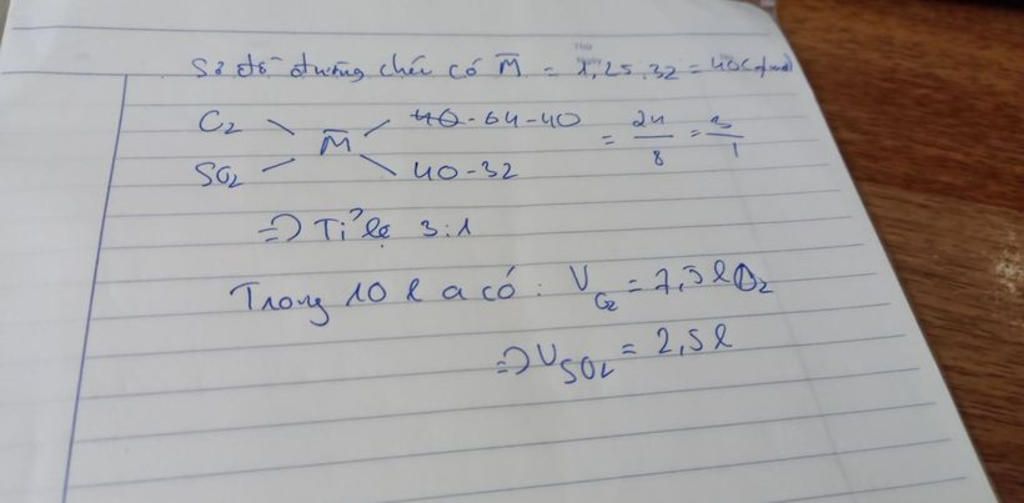 Sơ đồ đường chéo có M̄ = 1,25.32 = 40(g/mol)
O2 \ / 40 - 64-40 = 24/8 = 3/1
M̄
SO2 / \ 40-32
=> Tỉ lệ 3:1
Trong 10 l a có: V O2 = 7,5 l O2
=> V SO2 = 2,5 l